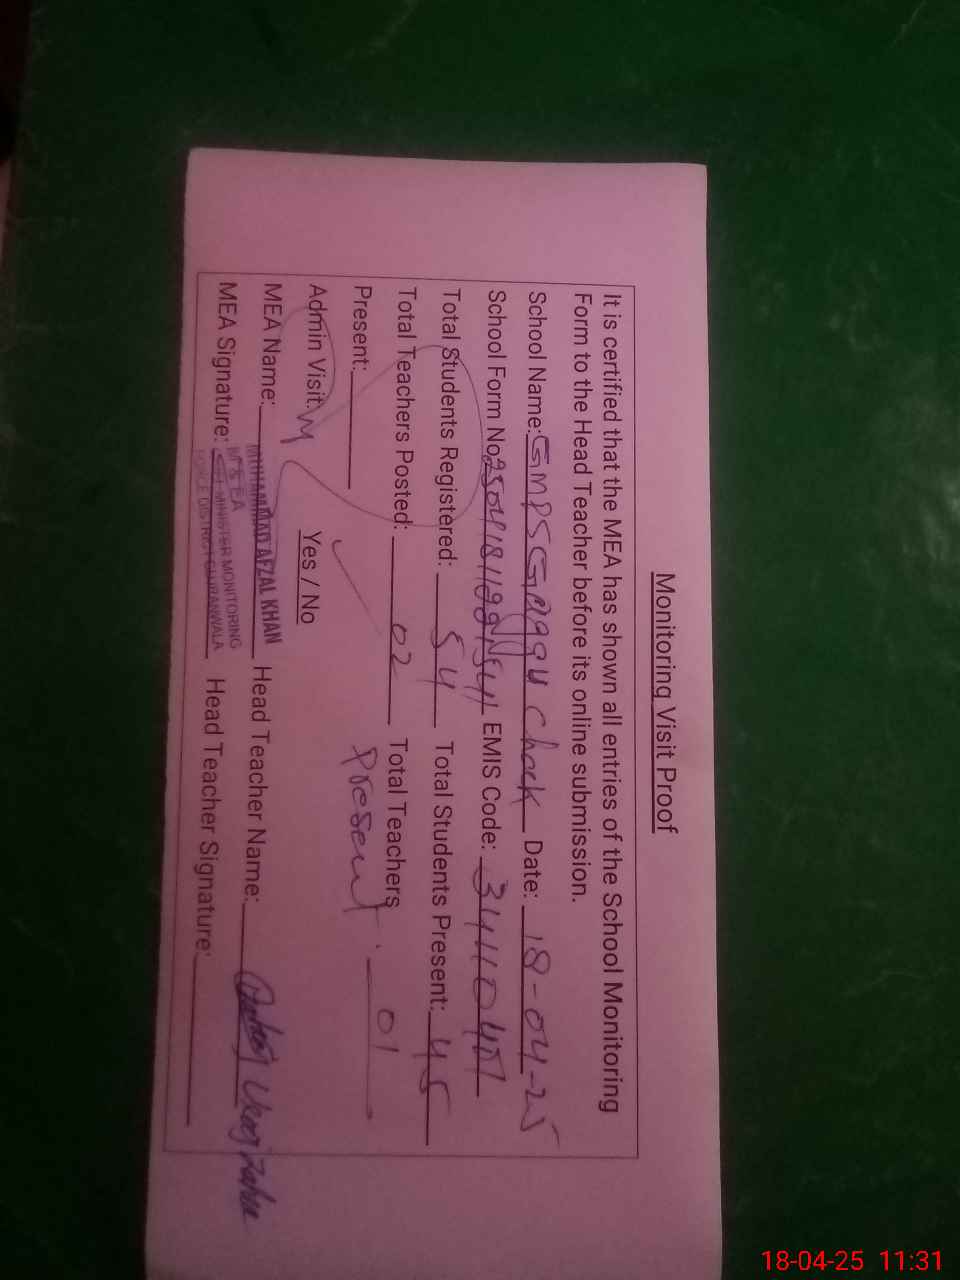 Monitoring Visit Proof
It is certified that the MEA has shown all entries of the School Monitoring
Form to the Head Teacher before its online submission.
School Name: GMPS Gaggu Chack Date: 18-04-25
School Form No. EMIS Code: 34110457
Total Students Registered: 54 Total Students Present: 45
Total Teachers Posted: 02 Total Teachers
Present: Present. 01
Admin Visit Yes / No
MEA Name: MUHAMMAD AFZAL KHAN Head Teacher Name:
MEA Signature: Head Teacher Signature:
M & EA
MINISTER MONITORING
FORCE DISTRICT GUJRANWALA
18-04-25 11:31